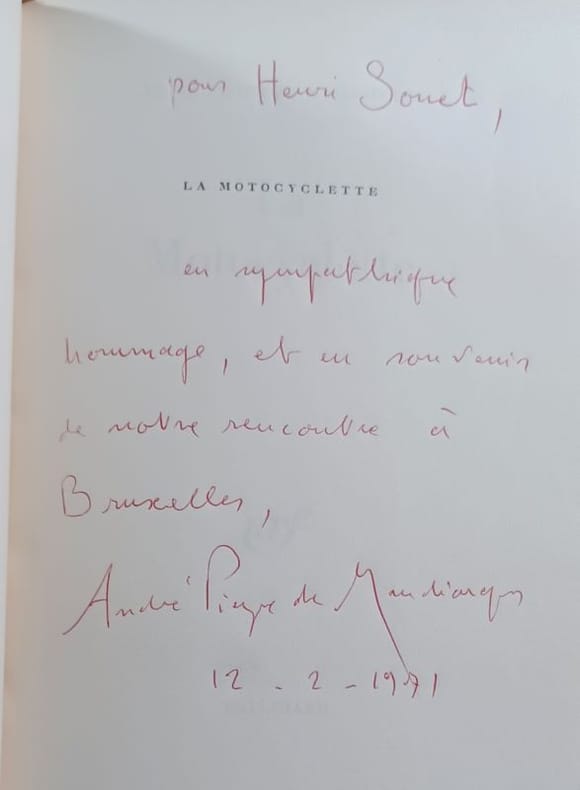 pour Henri Sonet,
LA MOTOCYCLETTE
en sympathique
hommage, et en souvenir
de notre rencontre à
Bruxelles,
André Pieyre de Mandiargues
12 - 2 - 1971